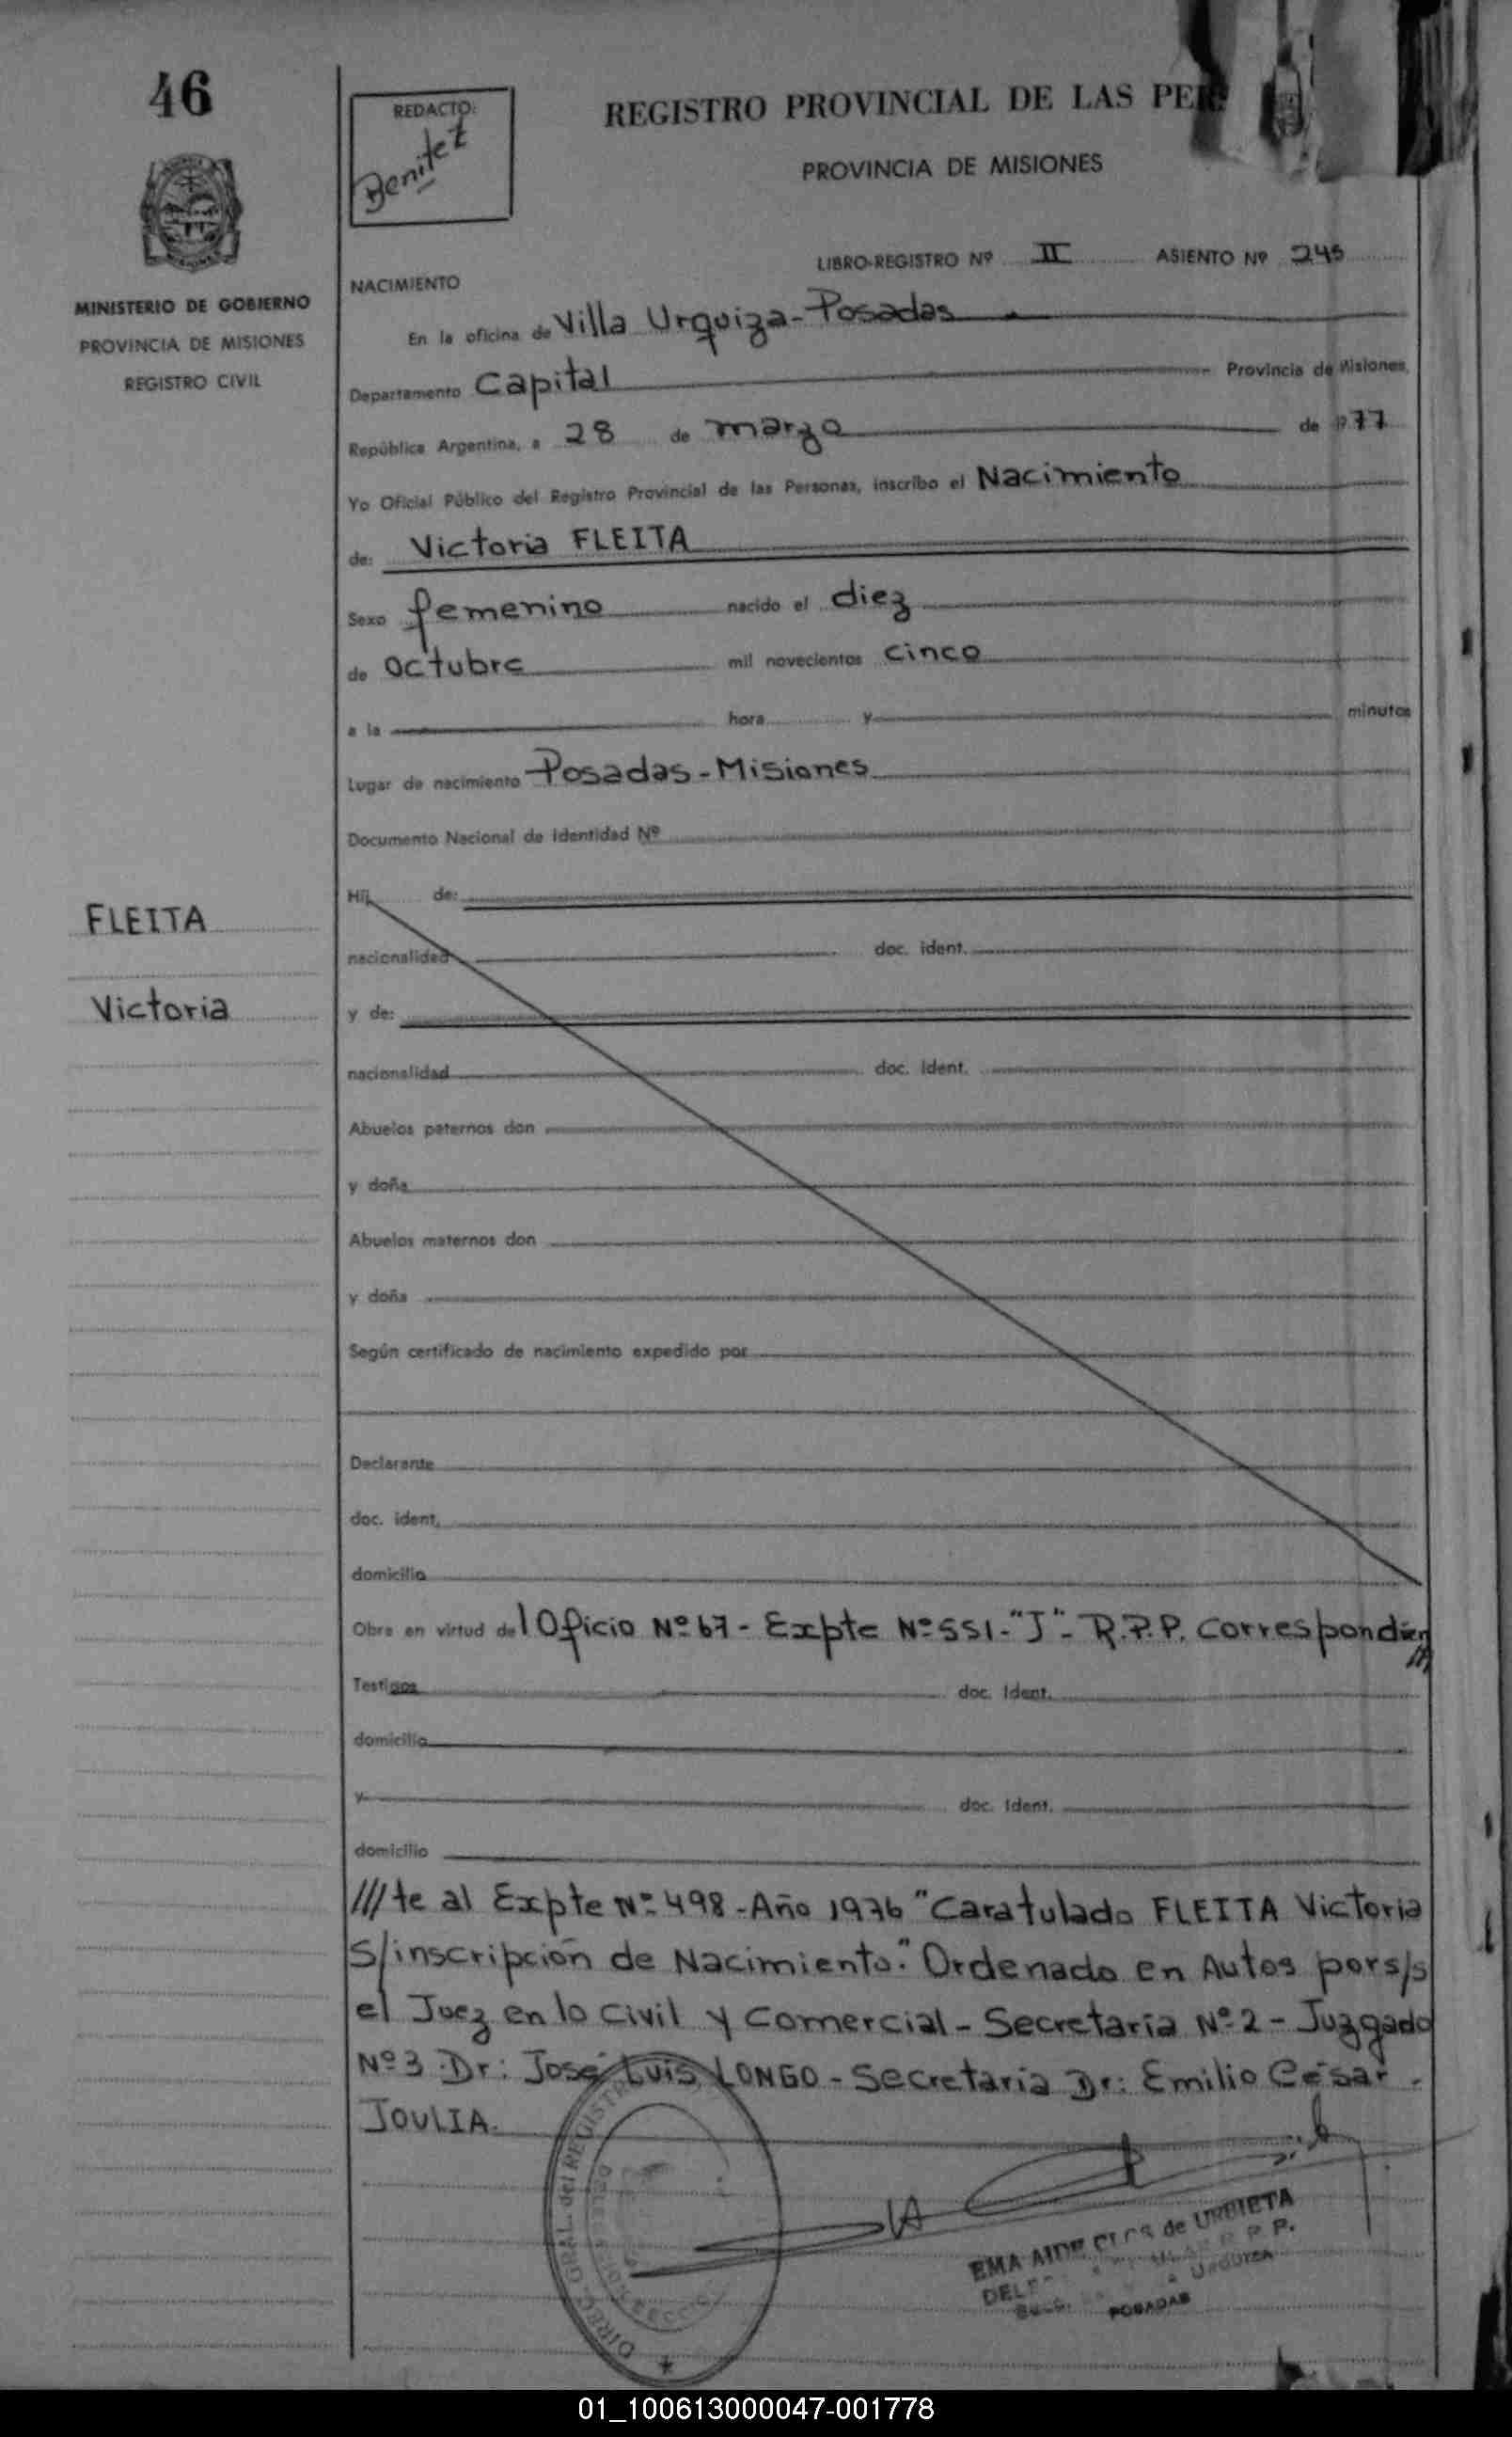 46
REDACTO:
Benitez
REGISTRO PROVINCIAL DE LAS PER
PROVINCIA DE MISIONES
LIBRO-REGISTRO Nº II ASIENTO Nº 245
MINISTERIO DE GOBIERNO
PROVINCIA DE MISIONES
REGISTRO CIVIL
NACIMIENTO
En la oficina de Villa Urquiza - Posadas
Departamento Capital Provincia de Misiones,
República Argentina, a 28 de marzo de 1977
Yo Oficial Público del Registro Provincial de las Personas, inscribo el Nacimiento
de: Victoria FLEITA
Sexo femenino nacido el diez
de Octubre mil novecientos cinco
a la hora y minutos
Lugar de nacimiento Posadas - Misiones
Documento Nacional de Identidad Nº
FLEITA
Victoria
Hij de:
nacionalidad doc. ident.
y de:
nacionalidad doc. ident.
Abuelos paternos don
y doña
Abuelos maternos don
y doña
Según certificado de nacimiento expedido por
Declarante
doc. ident.
domicilio
Obra en virtud de l Oficio Nº 67 - Expte Nº 551 - "J" - R.P.P. Correspondien
///
Testigos doc. ident.
domicilio
y doc. ident.
domicilio
///te al Expte Nº 498 - Año 1976 "Caratulado FLEITA Victoria
S/inscripción de Nacimiento." Ordenado en Autos por s/s
el Juez en lo Civil y Comercial - Secretaria Nº 2 - Juzgado
Nº 3 Dr: José Luis LONGO - Secretaria Dr: Emilio César
JOULIA.
DIREC. GRAL. del REGISTR
EMA AIDE CLOS de URBIETA
POSADAS
01_100613000047-001778